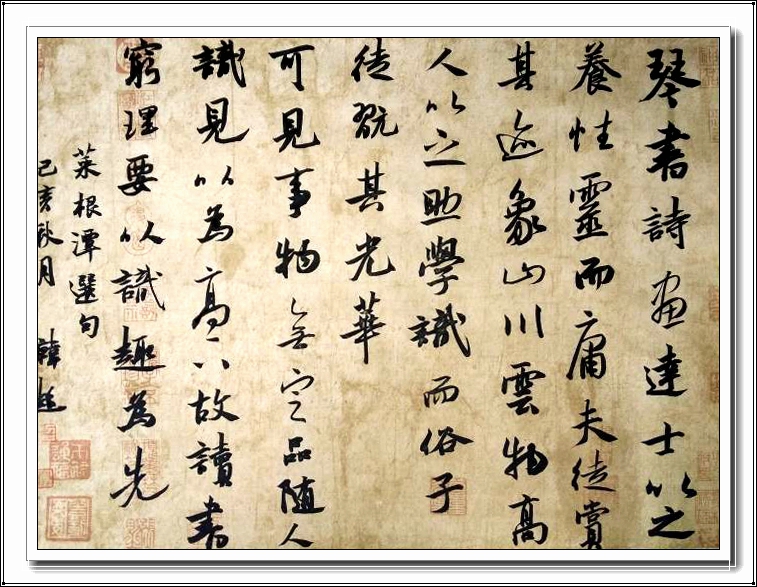 琴書詩画達士以之
養性靈而庸夫徒賞
其迹象山川雲物高
人以之助學識而俗子
徒翫其光華
可見事物無定品隨人
識見以為高下故讀書
窮理要以識趣為先
菜根潭選句
己亥秋月 韓